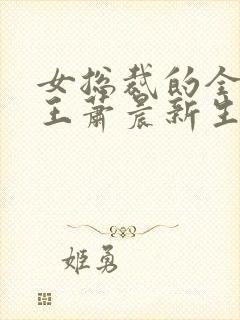 女总裁的全
王萧晨新生
姬勇